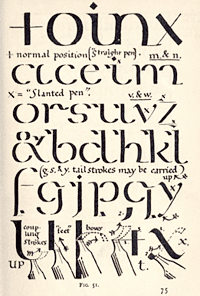 +oinx
+ normal position (Straight pen). m & n.
acceim
x = "Slanted pen". v. & w. x
orsuvz
&bdhkl
(g. s. & y. tail strokes may be carried) up x
fgjpqy
coupling strokes feet bows
up t. x
FIG. 51.
75